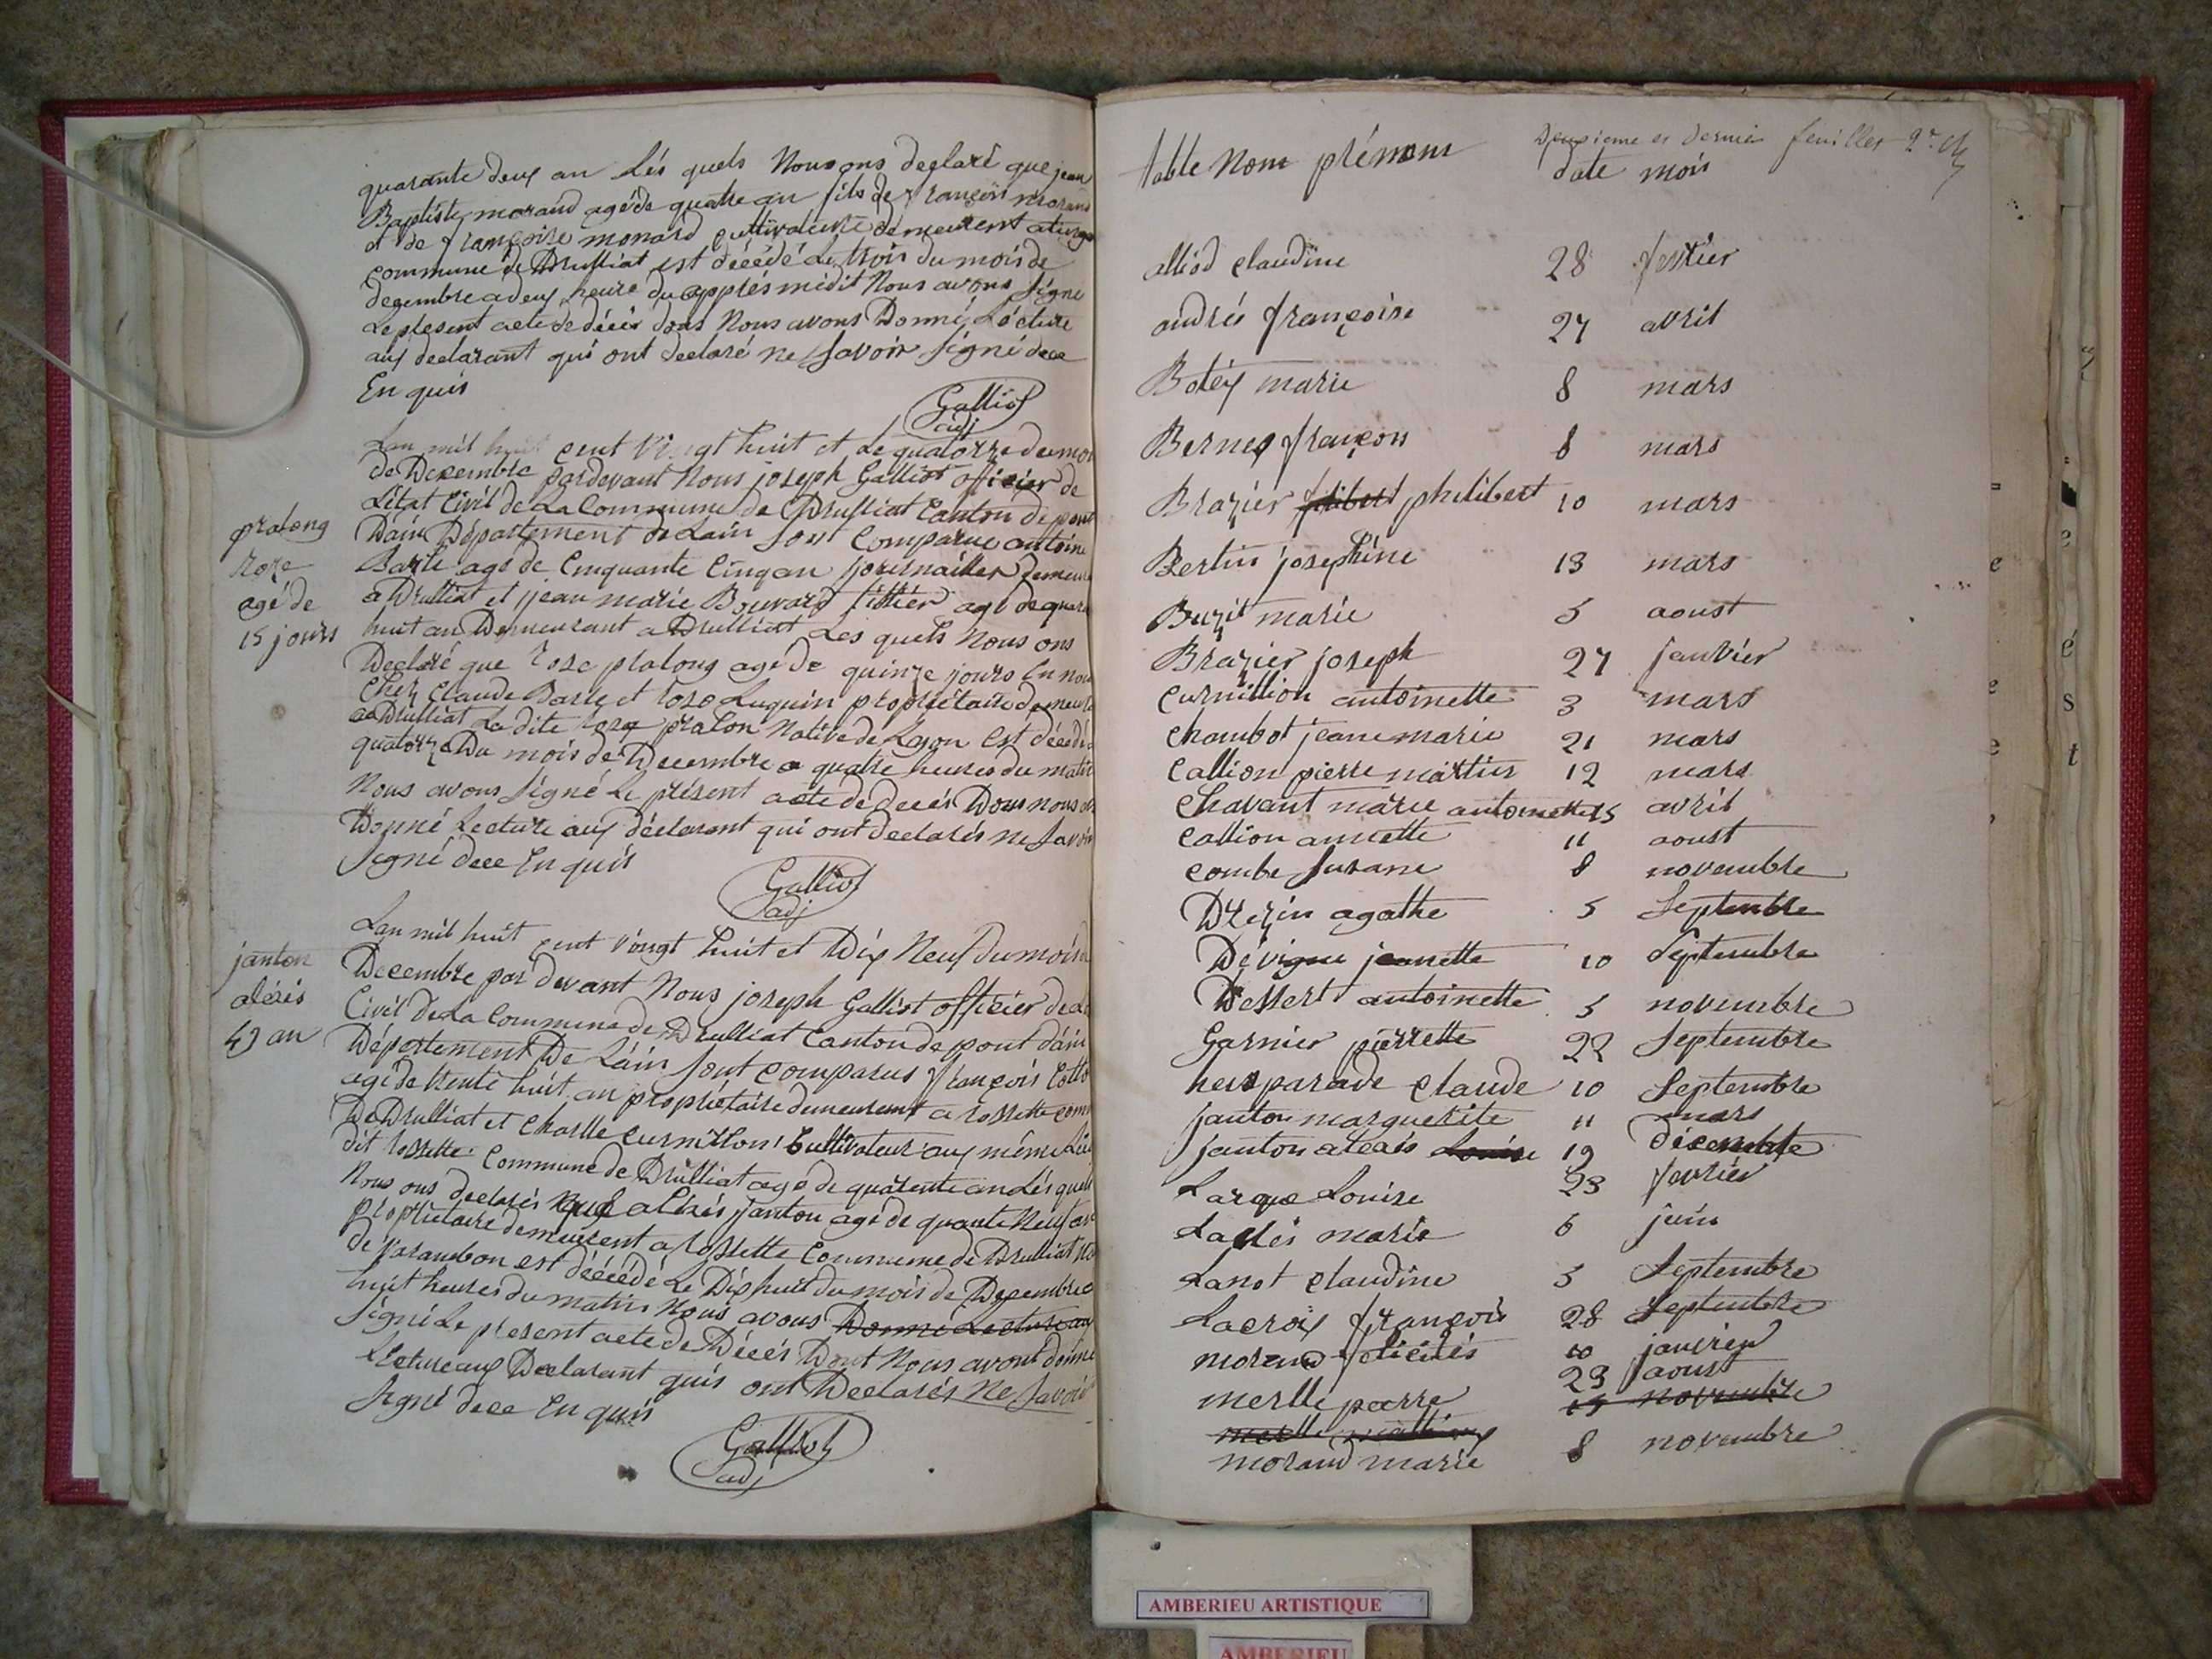 quarante deux an Lés quels Nous ons declaré que jean
Baptiste morand agé de quatre an fils de françois morand
et de françoise monard cultivateure demeurent a
commune de Drulliat est décédé Le trois du mois de
decembre a deux heure du apprés midit Nous avons Signe
Le present acte de décés dons Nous avons Donné Lécture
aux declarant qui ont declaré ne Savoir Signé dece
En quis
Galliot
adj
Lan mil huit cent vingt huit et Le quatorze du moi
de Decembre pardevant Nous joseph Galliot officier de
Létat Civil de La Commune de Drulliat Canton de pont
Dain Département de Lain Sont Comparue antoine
Barle agé de Cinquante Cinq an journailler demeur
a Drulliat et jean marie Bouvard agé de quara
huit an Demeurant a Drulliat Les quels Nous ons
Declaré que rose pralong agé de quinze jours En nou
Chez Claude Barle et rose Luquin propriétaire demeur
a Drulliat La dite rose pralon Native de Lyon est décédé
quatorze Du mois de Decembre a quatre heures du matin
Nous avons Signé Le présent acte de decés Dons nous av
Donné Lecture aux déclarant qui ont declarés ne Savoir
Signé dece En quis
Galliot
adj
pralong
roze
agé de
15 jours
Lan mil huit cent vingt huit et Dix Neuf du mois d
Decembre par devant Nous joseph Galliot officier de
Civil De La Commune de Drulliat Canton de pont dain
Département De Láin Sont Comparus françois
agé de trente huit an propriétaire demeurent a rossette com
De Drulliat et Charlle Curnillon Cultivateur aux même Lieu
dit rossette Commune de Drulliat agé de quarente an Lés quels
Nous ons declarés que aléxis janton agé de quante Neuf an
propriétaire demeurent a rossette Commune de Drulliat
de Varambon est décédé Le Dix huit du mois de Decembre
huit heures du matin Nous avons Donné Lecture aux
Signé Le présent acte de Décés Dont Nous avont donné
Lecture aux Declarant quis ont Declarés Ne Savoir
Signé dece En quis
Galliot
adj
janton
aléxis
49 an
Deuxieme et dernier feuilles
table Nom prénom date mois
alliod claudine 28 fevrier
andrés françoise 27 avril
Botéy marie 8 mars
Berne françois 8 mars
Brazier philibert 10 mars
Bertin joséphine 13 mars
Buzit marie 5 aoust
Brazier joseph 27 janvier
Curnillion antoinette 3 mars
Chambot jeanemarie 21 mars
Callion pierre martin 12 mars
Chavant marie antoinette 15 avril
Callion annette 11 aoust
Combe Susane 8 novembre
Drezin agathe 5 Septembre
Dévigne jeanette 10 Septembre
Dessert antoinette 5 novembre
Garnier pierrette 22 Septembre
heusparade Claude 10 Septembre
janton marguerite 11 mars
janton alexis Louise 19 décembre
Larque Louise 23 fevrier
Laclés marie 6 juin
Lanot Claudine 5 Septembre
Lacroix françois 28 Septembre
morand felicités 10 janvier
merlle pierre 23 aoust
merlle 15 novembre
morand marie 8 novembre
é
s
t
AMBERIEU ARTISTIQUE
AMBERIEU